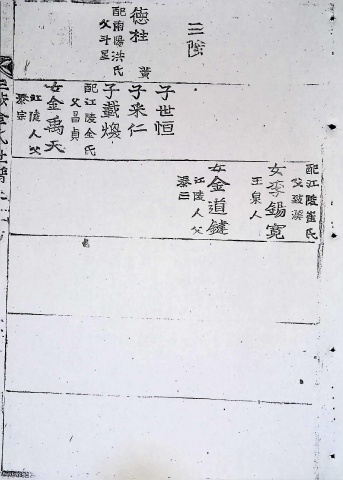 三陟
德柱
配南陽洪氏
父斗星
子世恒
子来仁
子載煥
配江陵金氏
父昌貞
女金禹天
江陵人父
泰宗
配江陵崔氏
女李錫寬
玉泉人
女金道鍵
江陵人父